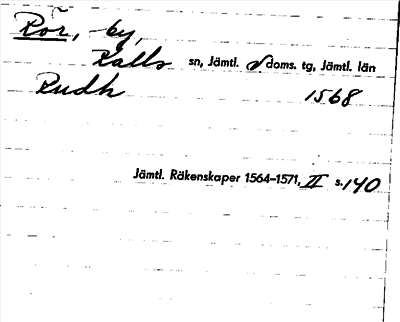 Rör, by,
Kalls sn, Jämtl. v doms. tg, Jämtl. län
Rudh 1568
Jämtl. Räkenskaper 1564–1571, II s. 140